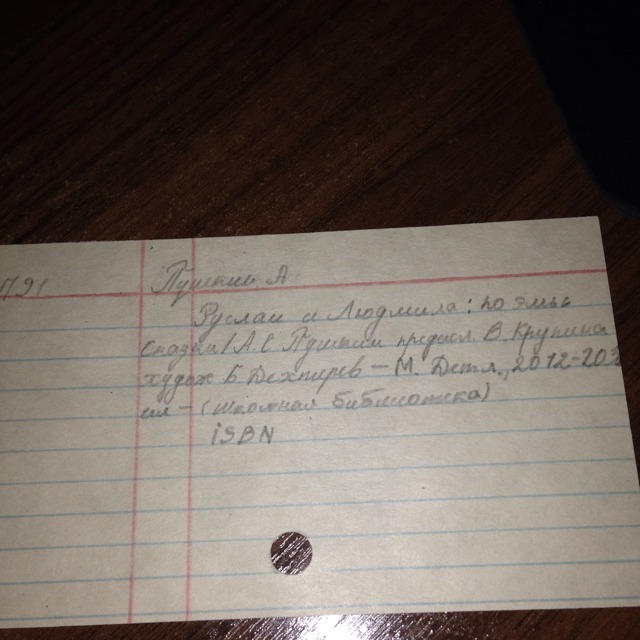 П91 Пушкин А.
Руслан и Людмила: поэмы
сказка / А.С Пушкин предисл В. Крупина
худож Б Дехтярев – М. Детл, 2012-203
ил – (школьная библиотека)
iSBN